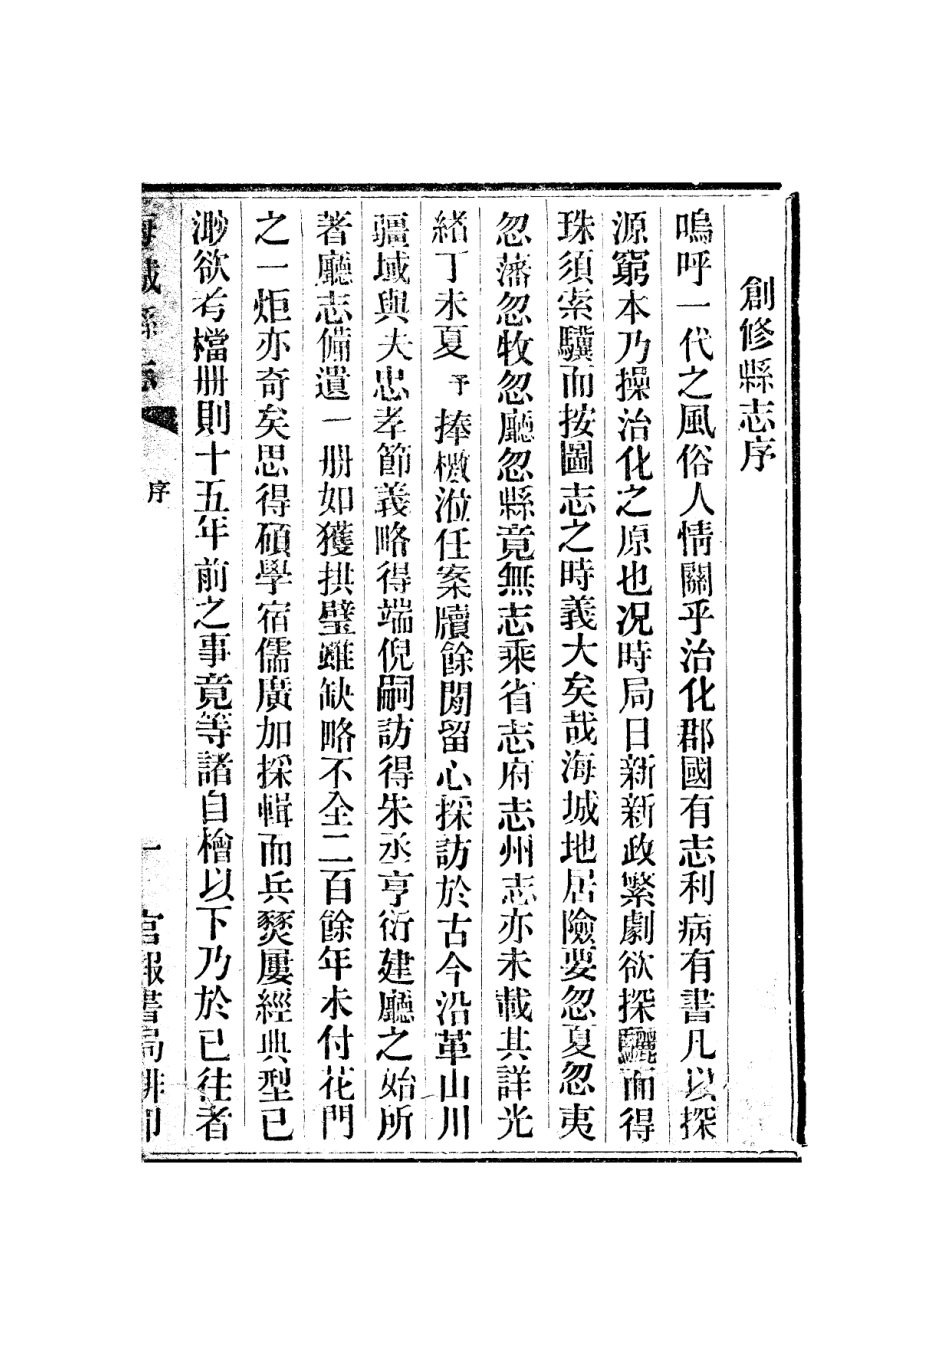 創修縣志序
嗚呼一代之風俗人情關乎治化郡國有志利病有書凡以探
源窮本乃操治化之原也况時局日新新政繁劇欲探驪而得
珠須索驥而按圖志之時義大矣哉海城地居險要忽夏忽夷
忽藩忽牧忽廳忽縣竟無志乘省志府志州志亦未載其詳光
緒丁未夏予捧檄涖任案牘餘閒留心採訪於古今沿革山川
疆域與夫忠孝節義略得端倪嗣訪得朱丞亨衍建廳之始所
著廳志備遺一册如獲拱璧雖缺略不全二百餘年未付花門
之一炬亦奇矣思得碩學宿儒廣加採輯而兵燹屢經典型已
渺欲考檔册則十五年前之事竟等諸自檜以下乃於已往者
海城縣志
序
一
官報書局排印